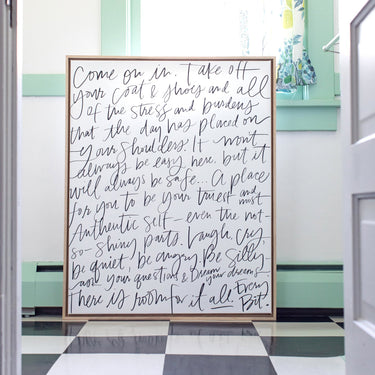 Come on in. Take off
your coat & shoes and all
of the stress and burdens
that the day has placed on
your shoulders. It won't
always be easy here, but it
will always be safe... A place
for you to be your truest and most
Authentic self - even the not-
so-shiny parts. Laugh, cry,
be quiet, be angry. Be silly,
ask your questions & Dream your dreams
There is room for it all. Every
Bit.